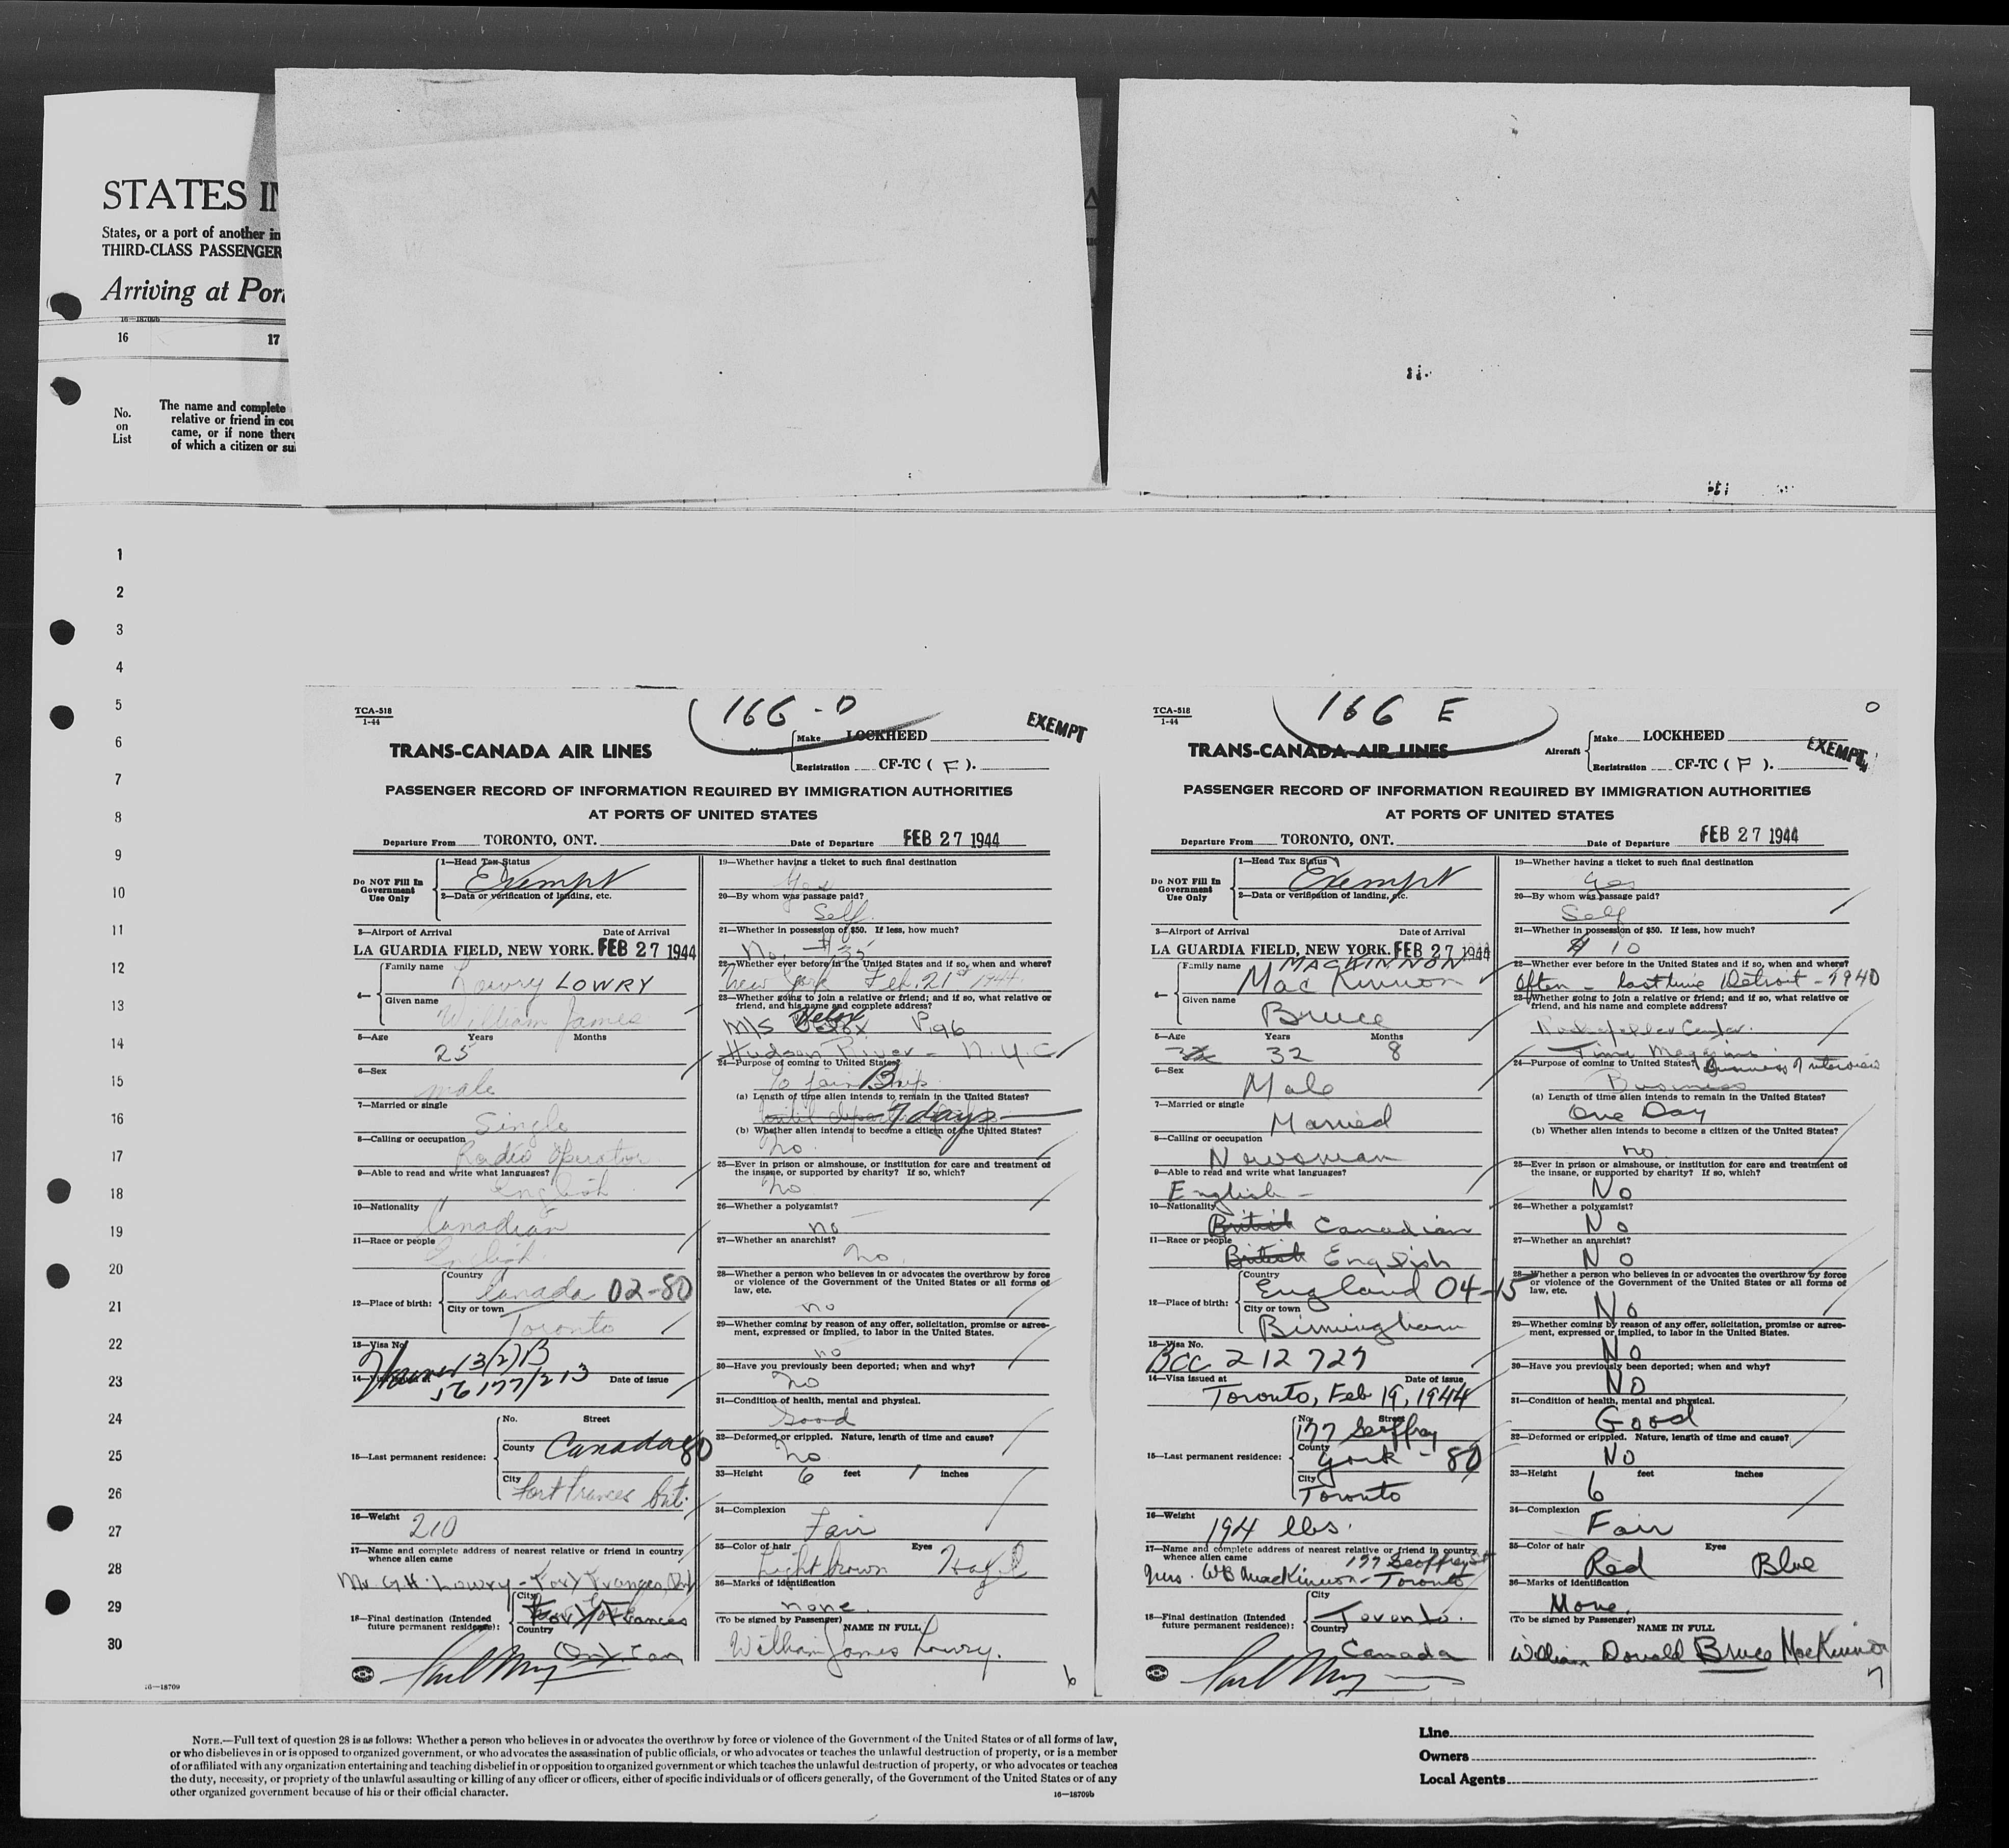 STATES IN
States, or a port of another in
THIRD-CLASS PASSENGER
Arriving at Por
16—18709b
16 17
No. on List
The name and complete
relative or friend in cou
came, or if none there
of which a citizen or su
1
2
3
4
5
6
7
8
9
10
11
12
13
14
15
16
17
18
19
20
21
22
23
24
25
26
27
28
29
30
16—18709
166-D
TCA-518
1-44
EXEMPT
TRANS-CANADA AIR LINES
Aircraft
Make LOCKHEED
Registration CF-TC ( F ).
PASSENGER RECORD OF INFORMATION REQUIRED BY IMMIGRATION AUTHORITIES
AT PORTS OF UNITED STATES
Departure From TORONTO, ONT. Date of Departure FEB 27 1944
Do NOT Fill In Government Use Only
1—Head Tax Status
Exempt
2—Data or verification of landing, etc.
3—Airport of Arrival Date of Arrival
LA GUARDIA FIELD, NEW YORK. FEB 27 1944
4— Family name
Lowry LOWRY
Given name
William James
5—Age Years Months
25
6—Sex
male
7—Married or single
Single
8—Calling or occupation
Radio Operator
9—Able to read and write what languages?
English
10—Nationality
Canadian
11—Race or people
English
12—Place of birth:
Country
Canada 02-80
City or town
Toronto
13—Visa No.
14— Date of issue
15—Last permanent residence:
No. Street
County Canada 80
City
Fort Frances Ont.
16—Weight
210
17—Name and complete address of nearest relative or friend in country
whence alien came
Mr. G.H. Lowry - Fort Frances, Ont
18—Final destination (Intended
future permanent residence):
City
Fort Frances
Country
Ont Can
19—Whether having a ticket to such final destination
Yes
20—By whom was passage paid?
Self.
21—Whether in possession of $50. If less, how much?
No $35
22—Whether ever before in the United States and if so, when and where?
New York Feb. 21st 1944
23—Whether going to join a relative or friend; and if so, what relative or
friend, and his name and complete address?
M/S P.96
Hudson River - N.Y.C
24—Purpose of coming to United States?
To join Ship
(a) Length of time alien intends to remain in the United States?
7 days
(b) Whether alien intends to become a citizen of the United States?
no
25—Ever in prison or almshouse, or institution for care and treatment of
the insane, or supported by charity? If so, which?
no
26—Whether a polygamist?
no
27—Whether an anarchist?
no
28—Whether a person who believes in or advocates the overthrow by force
or violence of the Government of the United States or all forms of
law, etc.
no
29—Whether coming by reason of any offer, solicitation, promise or agree-
ment, expressed or implied, to labor in the United States.
no
30—Have you previously been deported; when and why?
no
31—Condition of health, mental and physical.
Good
32—Deformed or crippled. Nature, length of time and cause?
no
33—Height 6 feet 1 inches
34—Complexion
Fair
35—Color of hair Eyes
Light brown Hazel
36—Marks of identification
none.
(To be signed by Passenger) NAME IN FULL
William James Lowry.
6
166 E
TCA-518
1-44
EXEMPT
TRANS-CANADA AIR LINES
Aircraft
Make LOCKHEED
Registration CF-TC ( F ).
PASSENGER RECORD OF INFORMATION REQUIRED BY IMMIGRATION AUTHORITIES
AT PORTS OF UNITED STATES
Departure From TORONTO, ONT. Date of Departure FEB 27 1944
Do NOT Fill In Government Use Only
1—Head Tax Status
Exempt
2—Data or verification of landing, etc.
3—Airport of Arrival Date of Arrival
LA GUARDIA FIELD, NEW YORK. FEB 27 1944
4— Family name MACKINNON
MacKinnon
Given name
Bruce
5—Age Years Months
32 8
6—Sex
Male
7—Married or single
Married
8—Calling or occupation
Newsman
9—Able to read and write what languages?
English -
10—Nationality
British Canadian
11—Race or people
British English
12—Place of birth:
Country
England 04-15
City or town
Birmingham
13—Visa No.
BCC 212729
14—Visa issued at Date of issue
Toronto, Feb 19, 1944
15—Last permanent residence:
No. Street
177 Geoffrey
County
York - 80
City
Toronto
16—Weight
194 lbs.
17—Name and complete address of nearest relative or friend in country
whence alien came 177 Geoffrey St
Mrs. WB MacKinnon - Toronto
18—Final destination (Intended
future permanent residence):
City
Toronto.
Country
Canada
19—Whether having a ticket to such final destination
Yes
20—By whom was passage paid?
Self
21—Whether in possession of $50. If less, how much?
$ 10
22—Whether ever before in the United States and if so, when and where?
Often - last time Detroit - 1940
23—Whether going to join a relative or friend; and if so, what relative or
friend, and his name and complete address?
Rockefeller Center.
Time Magazine.
24—Purpose of coming to United States? Business Interview
Business
(a) Length of time alien intends to remain in the United States?
One Day
(b) Whether alien intends to become a citizen of the United States?
no
25—Ever in prison or almshouse, or institution for care and treatment of
the insane, or supported by charity? If so, which?
No
26—Whether a polygamist?
No
27—Whether an anarchist?
No
28—Whether a person who believes in or advocates the overthrow by force
or violence of the Government of the United States or all forms of
law, etc.
No
29—Whether coming by reason of any offer, solicitation, promise or agree-
ment, expressed or implied, to labor in the United States.
No
30—Have you previously been deported; when and why?
No
31—Condition of health, mental and physical.
Good
32—Deformed or crippled. Nature, length of time and cause?
No
33—Height feet inches
6
34—Complexion
Fair
35—Color of hair Eyes
Red Blue
36—Marks of identification
None.
(To be signed by Passenger) NAME IN FULL
William Donald Bruce MacKinnon
7
NOTE.—Full text of question 28 is as follows: Whether a person who believes in or advocates the overthrow by force or violence of the Government of the United States or of all forms of law,
or who disbelieves in or is opposed to organized government, or who advocates the assassination of public officials, or who advocates or teaches the unlawful destruction of property, or is a member
of or affiliated with any organization entertaining and teaching disbelief in or opposition to organized government or which teaches the unlawful destruction of property, or who advocates or teaches
the duty, necessity, or propriety of the unlawful assaulting or killing of any officer or officers, either of specific individuals or of officers generally, of the Government of the United States or of any
other organized government because of his or their official character.
16—18709b
Line
Owners
Local Agents